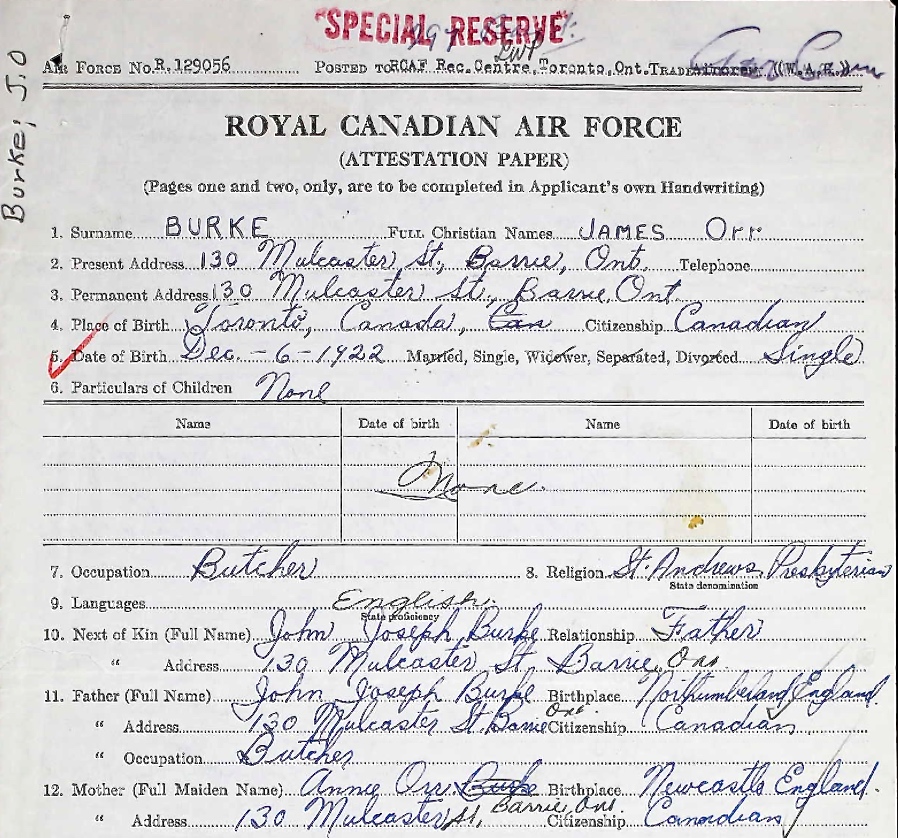 "SPECIAL RESERVE"
AIR FORCE No. R. 129056 POSTED TO RCAF Rec. Centre, Toronto, Ont. TRADE
Burke, J.O
ROYAL CANADIAN AIR FORCE
(ATTESTATION PAPER)
(Pages one and two, only, are to be completed in Applicant's own Handwriting)
1. Surname BURKE FULL Christian Names JAMES Orr
2. Present Address 130 Mulcaster St., Barrie, Ont. Telephone
3. Permanent Address 130 Mulcaster St., Barrie, Ont.
4. Place of Birth Toronto, Canada, Can Citizenship Canadian
5. Date of Birth Dec. - 6 - 1922 Married, Single, Widower, Separated, Divorced Single
6. Particulars of Children None
Name Date of birth Name Date of birth
None.
7. Occupation Butcher 8. Religion St. Andrews Presbyterian
State denomination
9. Languages English.
State proficiency
10. Next of Kin (Full Name) John Joseph Burke Relationship Father
" Address 130 Mulcaster St. Barrie, Ont.
11. Father (Full Name) John Joseph Burke Birthplace Northumberland, England.
" Address 130 Mulcaster St. Barrie Ont. Citizenship Canadian
" Occupation Butcher
12. Mother (Full Maiden Name) Annie Orr Burke Birthplace Newcastle England.
" Address 130 Mulcaster St, Barrie, Ont. Citizenship Canadian